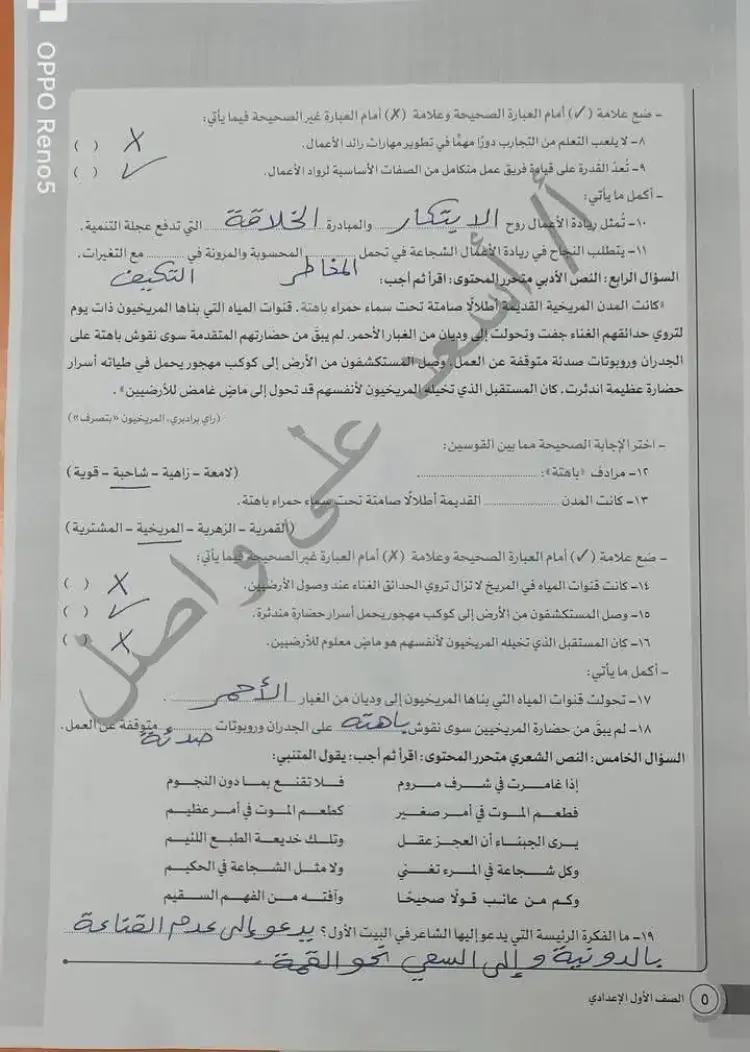 OPPO Reno5
- ضع علامة (✓) أمام العبارة الصحيحة وعلامة (✗) أمام العبارة غير الصحيحة فيما يأتي:
٨- لا يلعب التعلم من التجارب دورًا مهمًّا في تطوير مهارات رائد الأعمال. ( ) ✗
٩- تُعدّ القدرة على قيادة فريق عمل متكامل من الصفات الأساسية لرواد الأعمال. ( ) ✓
- أكمل ما يأتي:
١٠- تُمثل ريادة الأعمال روح الابتكار والمبادرة الخلاقة التي تدفع عجلة التنمية.
١١- يتطلب النجاح في ريادة الأعمال الشجاعة في تحمل المخاطر المحسوبة والمرونة في التكيف مع التغيرات.
السؤال الرابع: النص الأدبي متحرر المحتوى: اقرأ ثم أجب:
«كانت المدن المريخية القديمة أطلالًا صامتة تحت سماء حمراء باهتة. قنوات المياه التي بناها المريخيون ذات يوم
لتروي حدائقهم الغناء جفت وتحولت إلى وديان من الغبار الأحمر. لم يبقَ من حضارتهم المتقدمة سوى نقوش باهتة على
الجدران وروبوتات صدئة متوقفة عن العمل. وصل المستكشفون من الأرض إلى كوكب مهجور يحمل في طياته أسرار
حضارة عظيمة اندثرت. كان المستقبل الذي تخيله المريخيون لأنفسهم قد تحول إلى ماضٍ غامض للأرضيين».
(راي برادبري، المريخيون «بتصرف»)
- اختر الإجابة الصحيحة مما بين القوسين:
١٢- مرادف «باهتة»: .......... (لامعة - زاهية - شاحبة - قوية)
١٣- كانت المدن .......... القديمة أطلالًا صامتة تحت سماء حمراء باهتة.
(القمرية - الزهرية - المريخية - المشترية)
- ضع علامة (✓) أمام العبارة الصحيحة وعلامة (✗) أمام العبارة غير الصحيحة فيما يأتي:
١٤- كانت قنوات المياه في المريخ لا تزال تروي الحدائق الغناء عند وصول الأرضيين. ( ) ✗
١٥- وصل المستكشفون من الأرض إلى كوكب مهجور يحمل أسرار حضارة مندثرة. ( ) ✓
١٦- كان المستقبل الذي تخيله المريخيون لأنفسهم هو ماضٍ معلوم للأرضيين. ( ) ✗
- أكمل ما يأتي:
١٧- تحولت قنوات المياه التي بناها المريخيون إلى وديان من الغبار الأحمر.
١٨- لم يبقَ من حضارة المريخيين سوى نقوش باهته على الجدران وروبوتات صدئة متوقفة عن العمل.
السؤال الخامس: النص الشعري متحرر المحتوى: اقرأ ثم أجب: يقول المتنبي:
إذا غامرت في شرف مروم فلا تقنع بما دون النجوم
فطعم الموت في أمر صغير كطعم الموت في أمر عظيم
يرى الجبناء أن العجز عقل وتلك خديعة الطبع اللئيم
وكل شجاعة في المرء تغني ولا مثل الشجاعة في الحكيم
وكم من عائب قولًا صحيحًا وآفته من الفهم السقيم
١٩- ما الفكرة الرئيسة التي يدعو إليها الشاعر في البيت الأول؟ يدعو إلى عدم القناعة
بالدونية وإلى السعي نحو القمة.
٥ الصف الأول الإعدادي
أ/ أسعد على واصل